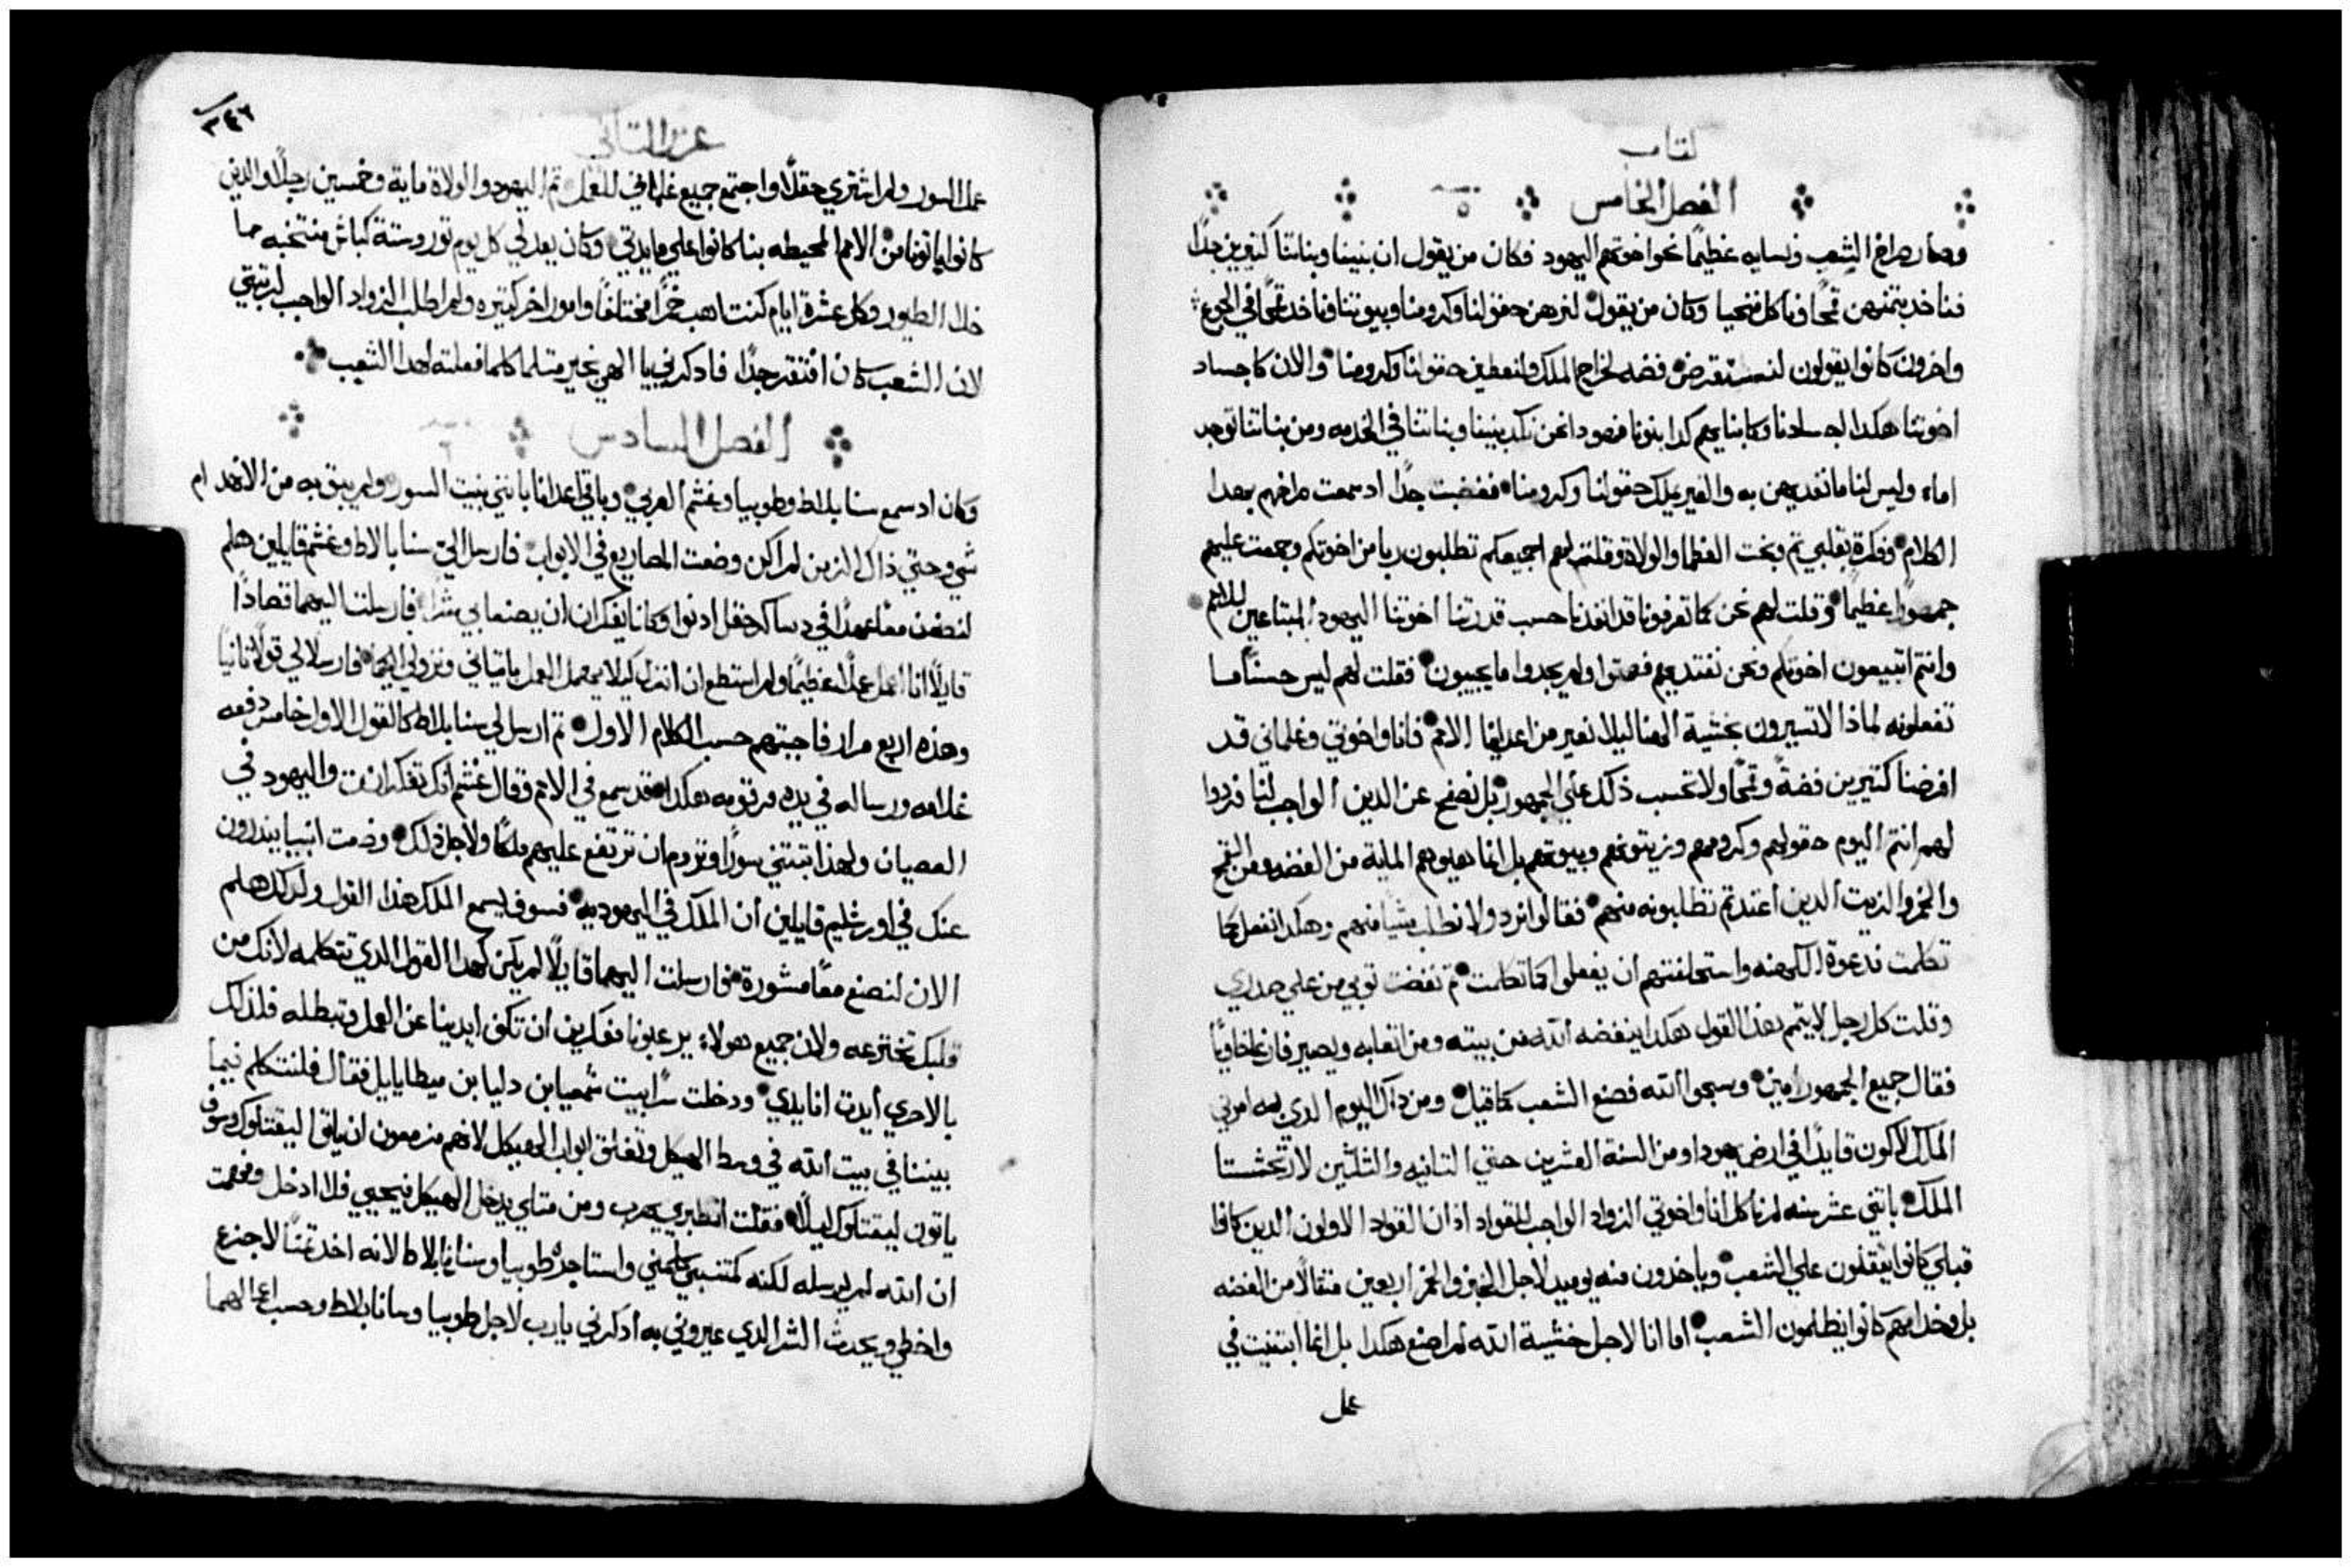 كتاب
الفصل الخامس
وصار صراخ الشعب ونسايه عظيمًا نحو اخوتهم اليهود فكان من يقول ان بنينا وبناتنا كتيرين جدًا
فناخد بتمنهن قمحًا وناكل فنحيا وكان من يقول لنرهن حقولنا وكرومنا وبيوتنا وناخد قمحًا في الجوع
واخرون كانوا يقولون لنستقرض فضه لخراج الملك ولنعطين حقولنا وكرومنا والان كاجساد
اخوتنا هكدا اجسادنا وكابنايهم كدا بنونا فهودا نحن نكد بنينا وبناتنا في الخدمه ومن بناتنا توجد
اماء وليس لنا ما نفديهن به والغير يملك حقولنا وكرومنا فغضبت جدًا اد سمعت صراخهم بهدا
الكلام وفكرة بقلبي تم وبخت العظما والولاة وقلت لهم اجميعكم تطلبون ربا من اخوتكم وجمعت عليهم
جمهورًا عظيمًا وقلت لهم نحن كما تعرفونا قد انقدنا حسب قدرتنا اخوتنا اليهود المبتاعين للامم
وانتم اتبيعون اخوتكم ونحن نفتديهم فصمتوا ولم يجدوا ما يجيبون فقلت لهم ليس حسنًا ما
تفعلونه لماذا لا تسيرون بخشية الهنا ليلا نعير من اعداينا الامم فانا واخوتي وغلماني قد
اقرضنا كتيرين فضةً وقمحًا ولا نحسب ذلك علي الجمهور بل نصفح عن الدين الواجب لنا فردوا
لهم انتم اليوم حقولهم وكرومهم وزيتونهم وبيوتهم بل انما هبوهم الماية من الفضه ومن القمح
والخمر والزيت الدين اعتدتم تطلبونه منهم فقالوا نرد ولا نطلب شيًا منهم وهكدا نفعل كما
تكلمت فدعوة الكهنه واستحلفتهم ان يفعلوا كما تكلمت تم نفضت توبي من علي صدري
وقلت كل رجل لا يتمم هدا القول هكدا ينفضه الله من بيته ومن اتعابه ويصير فارغًا خاويًا
فقال جميع الجمهور امين وسبحوا الله فصنع الشعب كما قيل ومن داك اليوم الدي به امرني
الملك لاكون قايدًا في ارض يهودا ومن السنة العشرين حتي التانيه والثلثين لارتحشستا
الملك باتني عشر سنه لم ناكل انا واخوتي الزواد الواجب للقواد اذ ان القواد الاولون الدين كانوا
قبلي كانوا يتقلون علي الشعب وياخدون منه يوميًا لاجل الخبز والخمر اربعين متقالًا من الفضه
بل وخدامهم كانوا يظلمون الشعب اما انا لاجل خشية الله لم اصنع هكدا بل انما ابتنيت في
عمل
٣٤٦
عزرا التاني
عمل السور ولم اشتري حقلًا واجتمع جميع غلماني للعمل تم اليهود والولاة ماية وخمسين رجلًا والدين
كانوا ياتونا من الامم المحيطه بنا كانوا علي مايدتي وكان يعد لي كل يوم تور وستة كباش منتخبه ما
خلا الطيور وكل عشرة ايام كنت اهب خمرًا مختلفًا وامور اخر كتيره ولم اطلب الزواد الواجب لرتبتي
لان الشعب كان افتقر جدًا فادكرني يا الهي بخير متلما كلما فعلته لهدا الشعب
الفصل السادس
وكان اد سمع سنابلاط وطوبيا وغشم العربي وباقي اعداينا باني بنيت السور ولم يبق به من الانهدام
شي وحتي ذاك الزمن لم اكن وضعت المصاريع في الابواب فارسل الي سنابالاط وغشم قايلين هلم
لنضرب معًا عهدًا في دساكر حقل ادنوا وكانا يفكران ان يصنعا بي شرًا فارسلت اليهما قصادًا
قايلًا انا اعمل عملًا عظيمًا ولم استطع ان انزل ليلا يهمل العمل باتياني ونزولي اليكما فارسلا لي قولًا تانيًا
وهذه اربع مرار فاجبتهم حسب الكلام الاول تم ارسل لي سنابلاط كالقول الاول خامس دفعه
غلامه ورساله في يده مرقومه هكدا قد سمع في الامم وقال غشم انك تفكر انت واليهود في
العصيان ولهدا تبتني سورًا وتروم ان ترتفع عليهم ملكًا ولاجل ذلك وضعت انبيا يندرون
عنك في اورشليم قايلين ان الملك في اليهوديه فسوف يسمع الملك هدا القول ولدلك هلم
الان لنصنع معًا مشورة فارسلت اليهما قايلًا لم يكن كهدا القول الدي تتكلمه لانك من
قلبك تخترعه ولان جميع هولاء يرعبونا مفكرين ان تكف ايدينا عن العمل وتبطله فلذلك
بالاحري أيدت انا يدي ودخلت سرًا بيت شمعيا بن دليا بن ميطابايل فقال فلنتكلم فيما
بيننا في بيت الله في وسط الهيكل ونغلق ابواب الهيكل لانهم مزمعون ان ياتوا ليقتلوك وسوف
ياتون ليقتلوك ليلًا فقلت انظيري يهرب ومن متلي يدخل الهيكل فيحيي فلا ادخل وفهمت
ان الله لم يرسله لكنه كمتنبي كلمني واستاجره طوبيا وسنابالاط لانه اخد تمنًا لاجزع
واخطي ويحدت الشر الدي عيروني به ادكرني يا رب لاجل طوبيا وسانابلاط وحسب اعمالهما